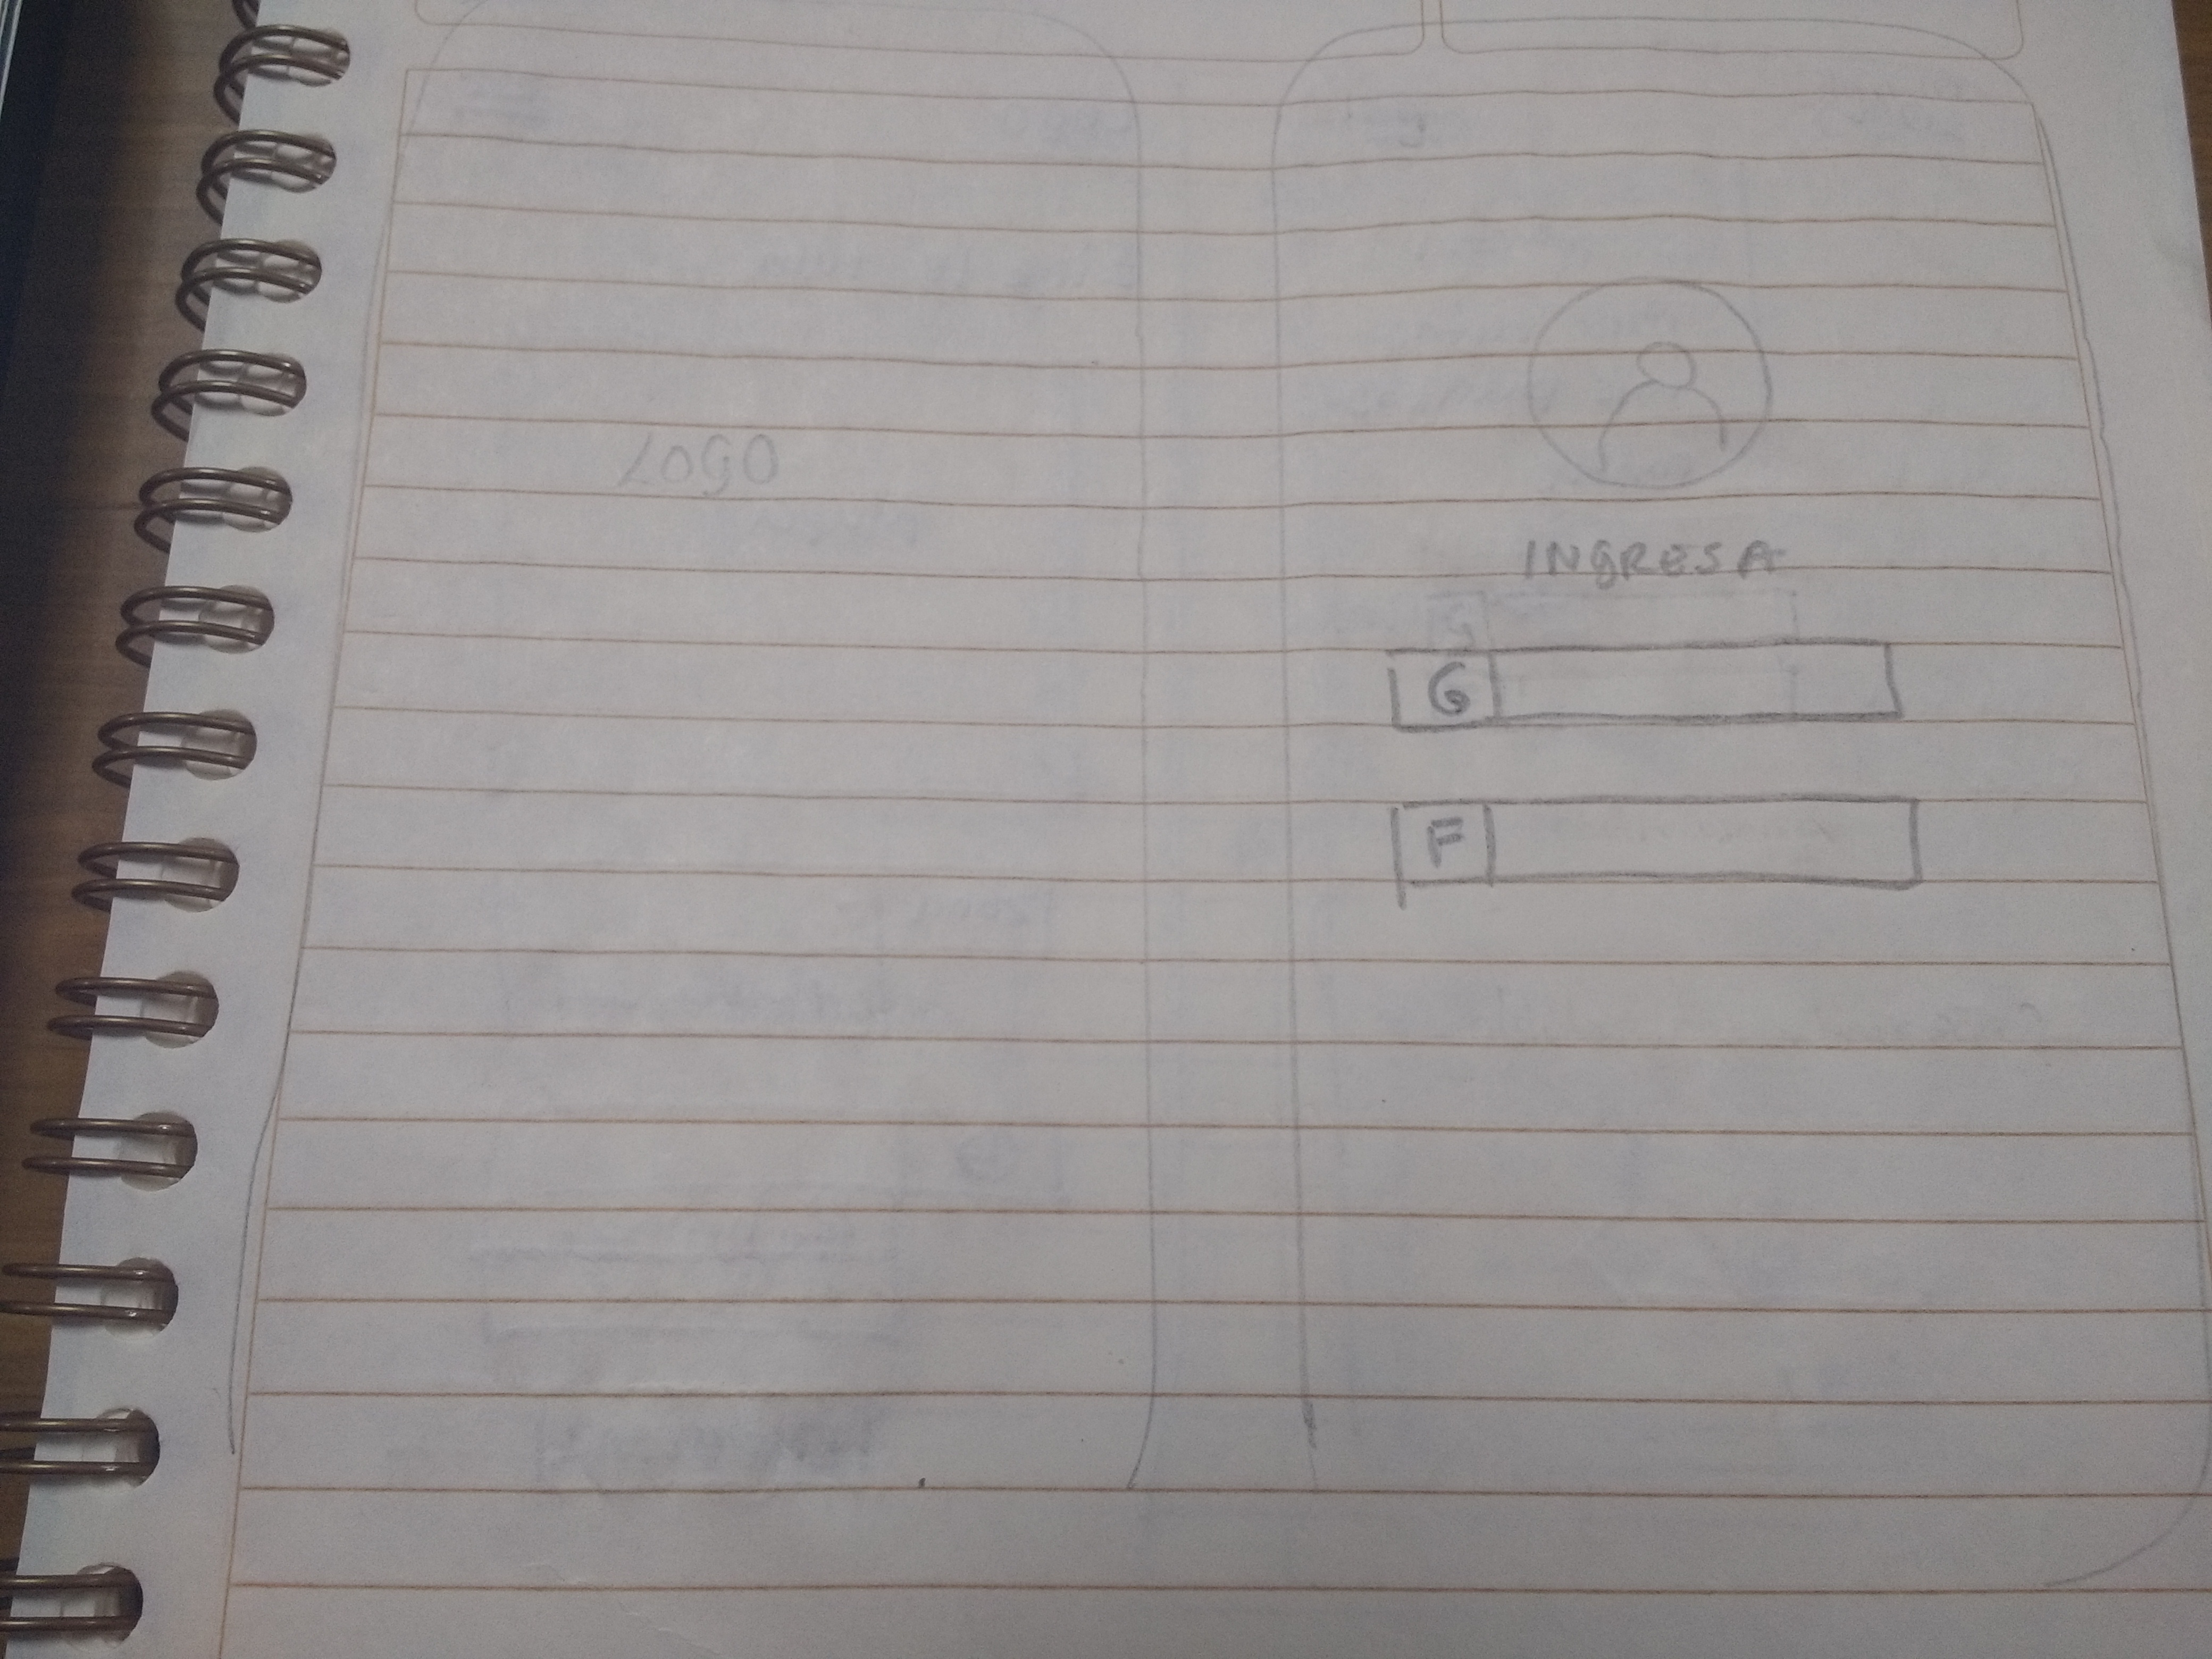 LOGO
INGRESA
G
F